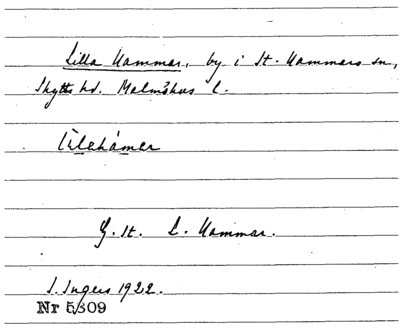 Lilla Hammar, by i St. Hammars sn,
Skytts hd. Malmöhus l.
Lìlahàmar
G. st. L. Hammar.
I. Ingers 1922.
Nr 5309